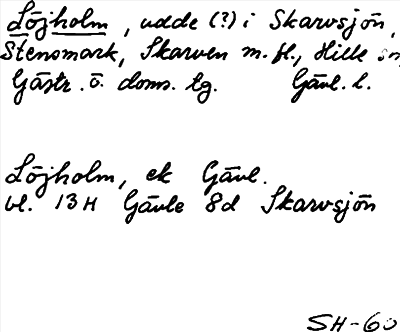 Löjholm, udde (?) i Skarvsjön,
Stensmark, Skarven m. fl., Hille sn
Gästr. ö. doms. tg. Gävl. l.
Löjholm, ek Gävl.
bl. 13 H Gävle 8d Skarvsjön
SH-60